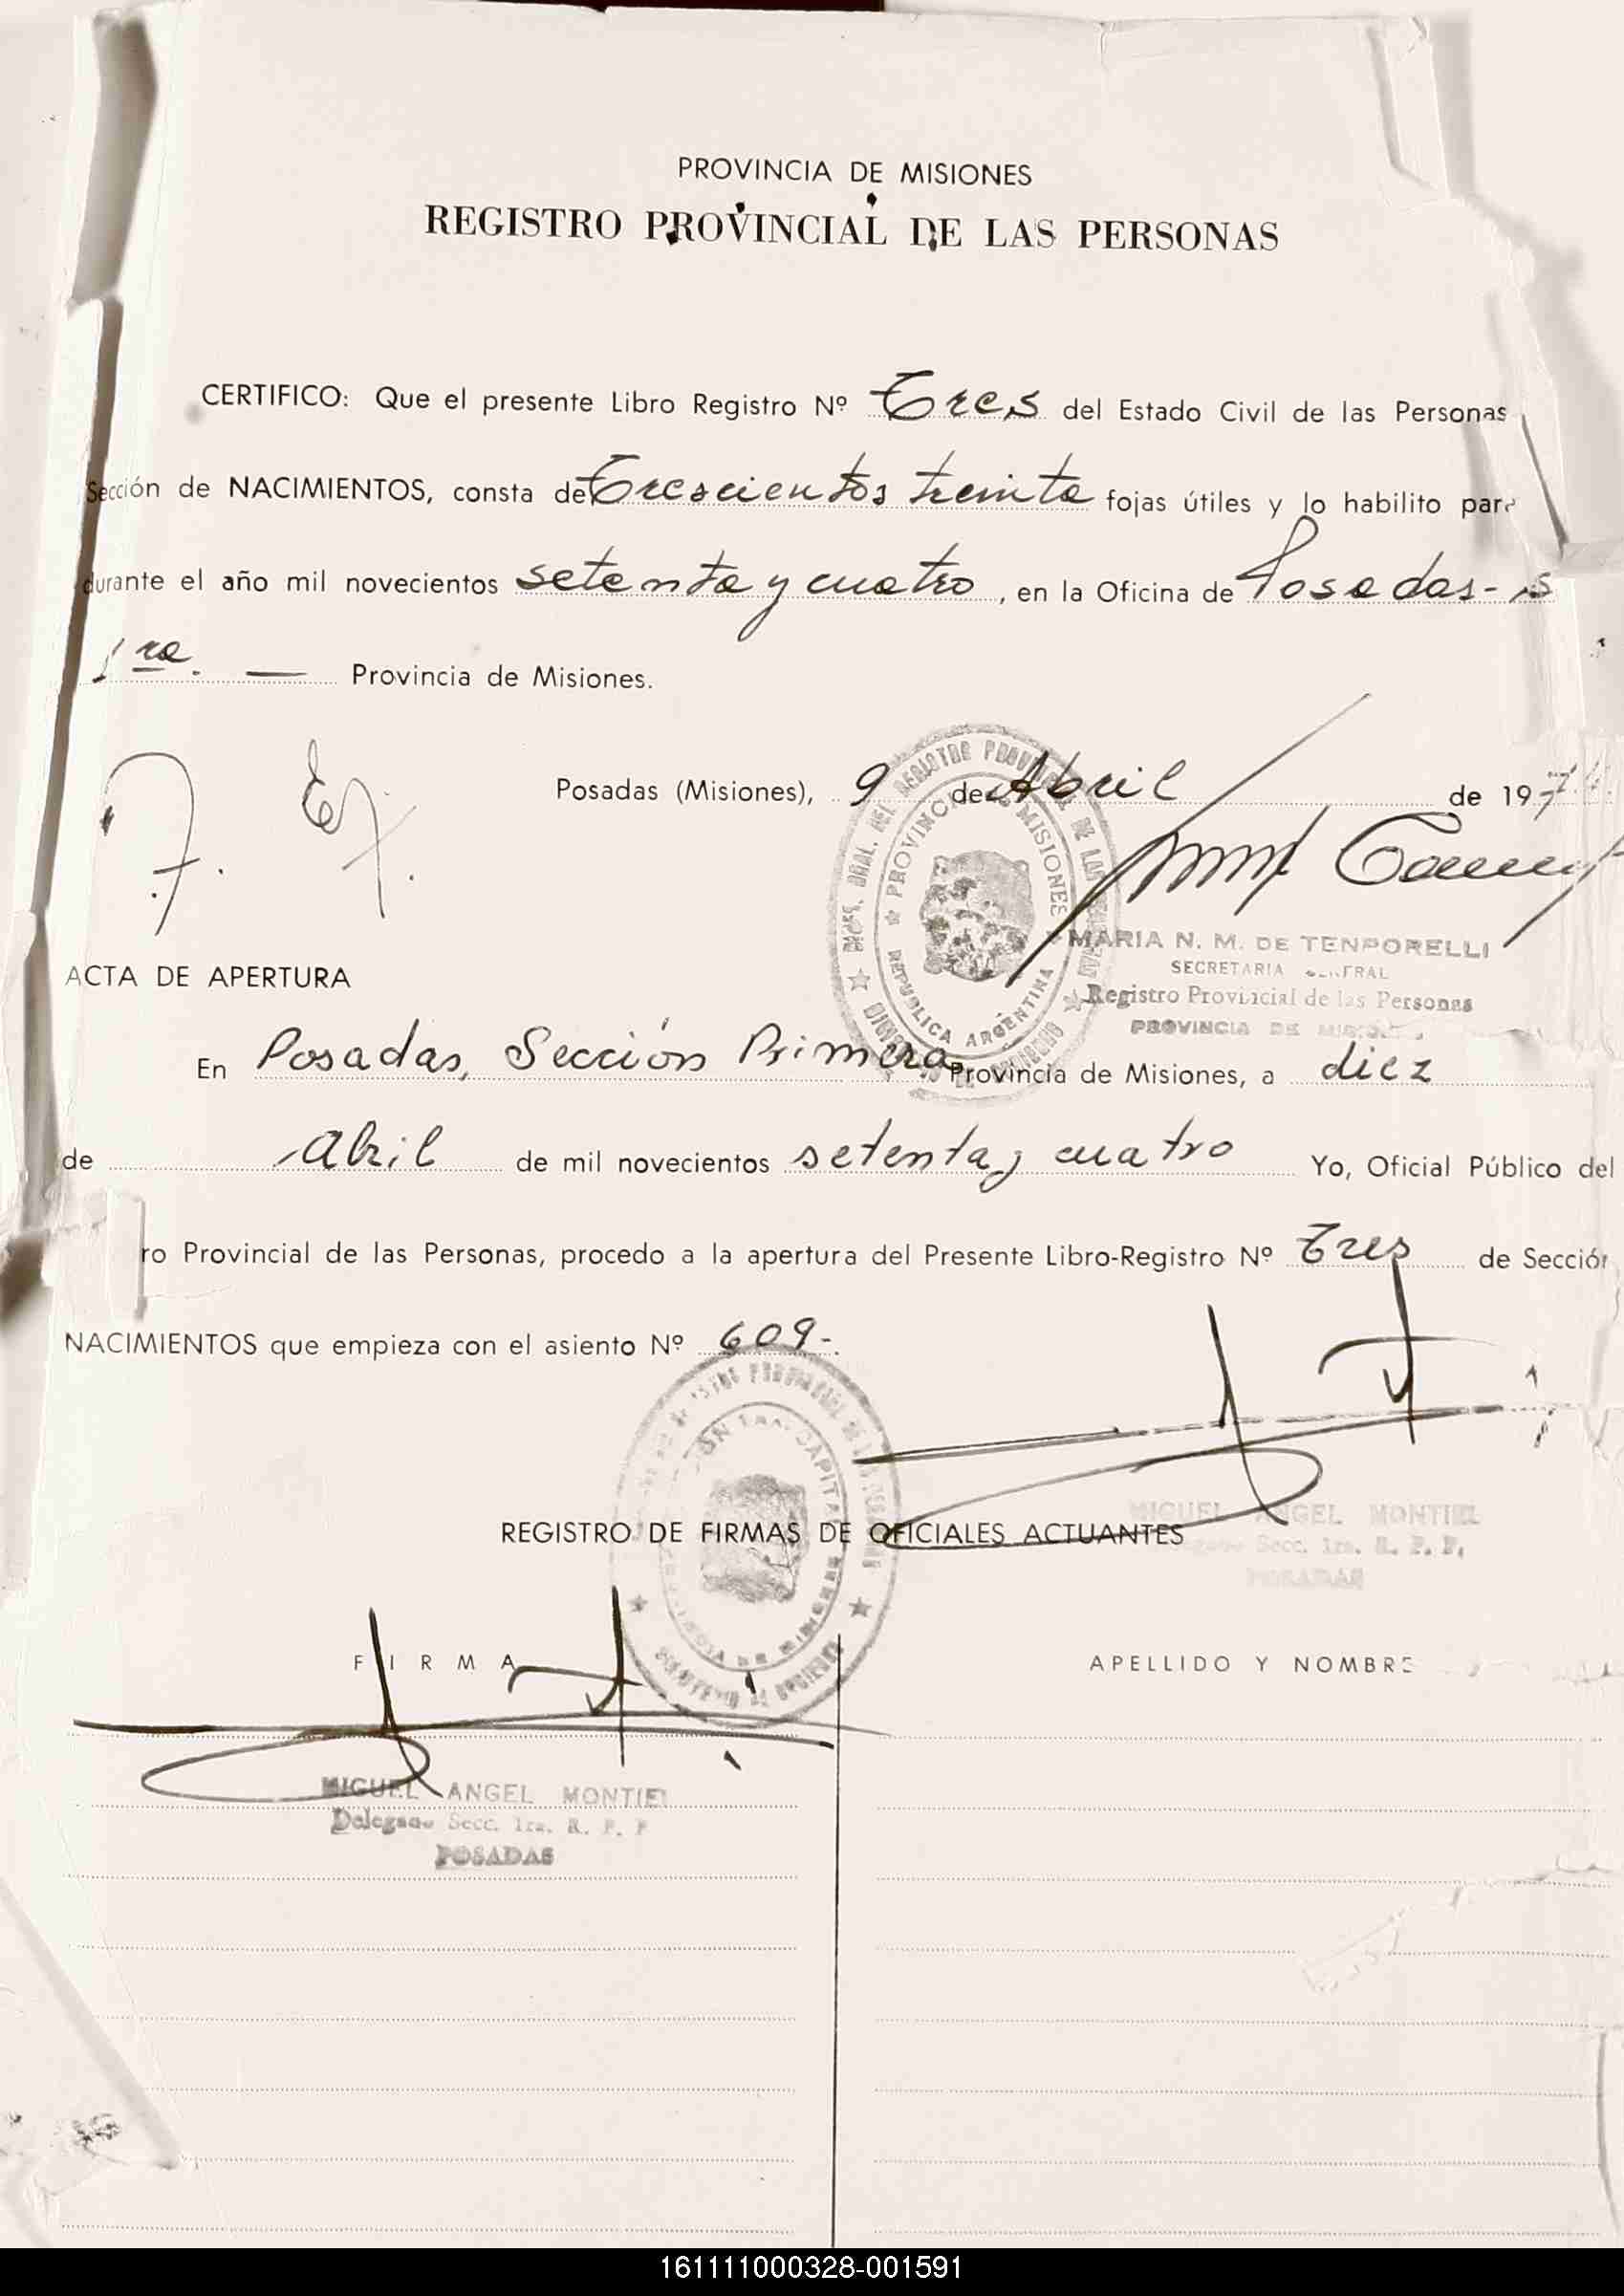 PROVINCIA DE MISIONES
REGISTRO PROVINCIAL DE LAS PERSONAS
CERTIFICO: Que el presente Libro Registro Nº Tres del Estado Civil de las Personas
Sección de NACIMIENTOS, consta de Trescientos treinta fojas útiles y lo habilito para
durante el año mil novecientos setenta y cuatro, en la Oficina de Posadas- S
1ra. — Provincia de Misiones.
Posadas (Misiones), 9 de Abril de 197
MARIA N. M. DE TENPORELLI
SECRETARIA GENERAL
Registro Provincial de las Personas
PROVINCIA DE MISIONES
PROVINCIA DE MISIONES
REPUBLICA ARGENTINA
ACTA DE APERTURA
En Posadas, Sección Primera Provincia de Misiones, a diez
de Abril de mil novecientos setenta y cuatro Yo, Oficial Público del
ro Provincial de las Personas, procedo a la apertura del Presente Libro-Registro Nº Tres de Sección
NACIMIENTOS que empieza con el asiento Nº 609-.
MIGUEL ANGEL MONTIEL
Secc. 1ra. R. P. P.
POSADAS
REGISTRO DE FIRMAS DE OFICIALES ACTUANTES
FIRMA
APELLIDO Y NOMBRE
MIGUEL ANGEL MONTIEL
Delegado Secc. 1ra. R. P. P
POSADAS
161111000328-001591